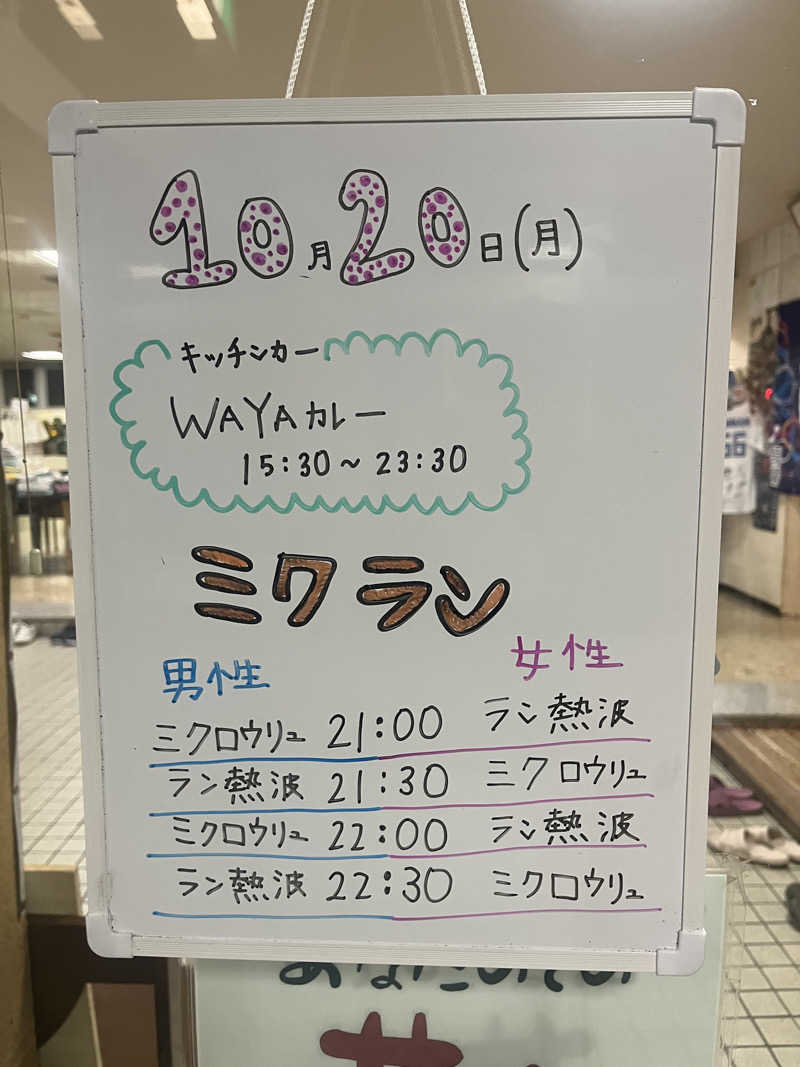 10月20日(月)
キッチンカー
WAYAカレー
15:30～23:30
ミクラン
男性 女性
ミクロウリュ 21:00 ラン熱波
ラン熱波 21:30 ミクロウリュ
ミクロウリュ 22:00 ラン熱波
ラン熱波 22:30 ミクロウリュ
66